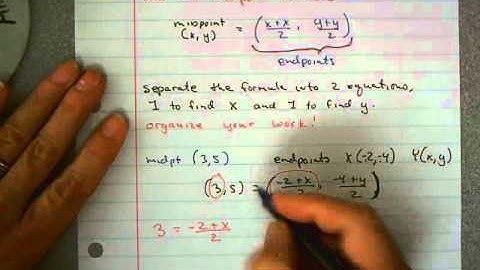 midpoint = (x+x/2, y+y/2)
(x, y)
endpoints
separate the formula into 2 equations,
1 to find x and 1 to find y.
organize your work!
midpt (3,5) endpoints X(-2,-4) Y(x,y)
(3,5) = (-2+x/2, -4+y/2)
3 = -2+x/2